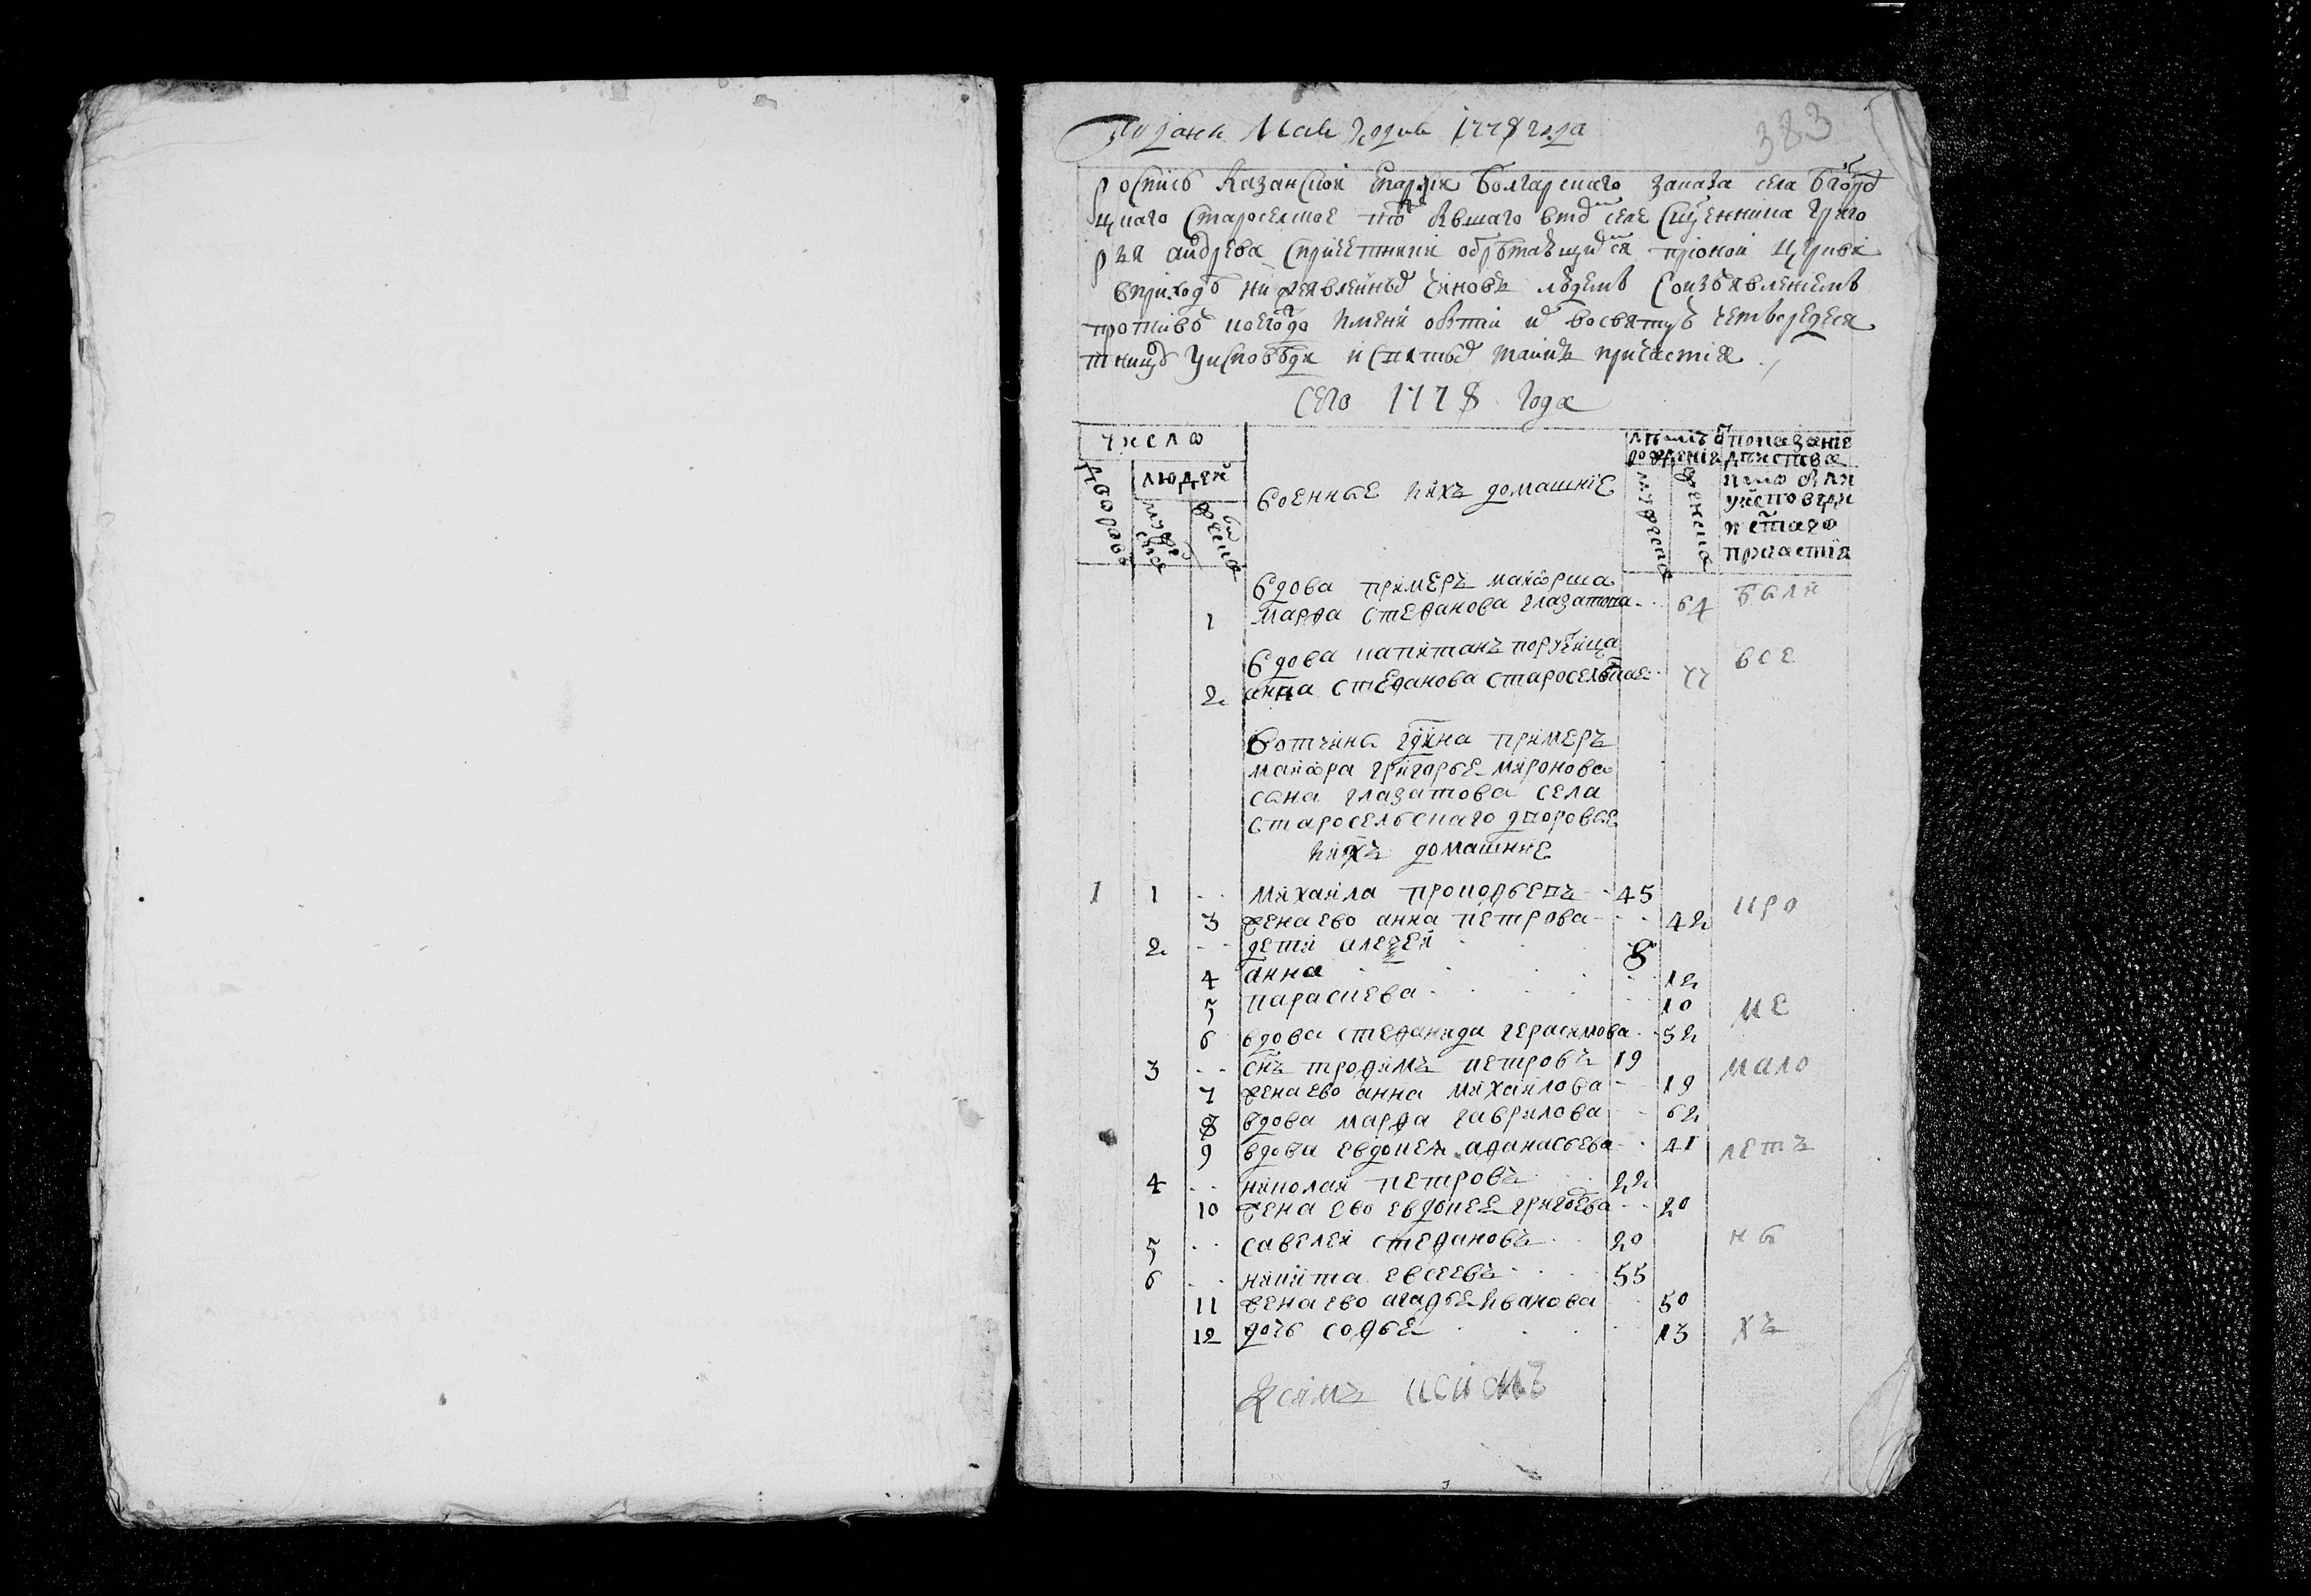 Подана Маія 1778 года
383
роспись Казанской Епархіи Болгарскаго заказа села Бгоро
цкаго Староселское тоⷤ
села Сщенника Григо
рья андрѣева Спричетники обрѣтающихся прионой Цркви
вприходѣ нижеявленныхъ чиновъ людемъ Соизъявленіемъ
противъ коегождо имени о бытіи ихъ восвятую четыредеся
тницу уисповѣди и стыхъ таинъ причастія
Сего 1778 Года
число
дворовъ
людей
мужеска
женска
военные ихъ домашніе
лѣтъ ѿ рожденія
мужеска
женска
показаніе
действа
кто были
уисповеди
и стаго
причастія
вдова примеръ маиорша
1 марфа степанова глазатова 64 были
вдова капитанъ поручица
2 анна степанова старосельская 77 все
вотчина гдина примеръ
маиора григорье миронова
сына глазатова села
старосельскаго дворовые
ихъ домашние
1 1 михаила прокофьевъ 45 кро
3 жена ево анна петрова 42
2 дети алеѯей 8
4 анна 12
5 параскева 10 ме
6 вдова стефанида герасимова 52
3 снъ трофимъ петровъ 19 мало
7 жена ево анна михаилова 19
8 вдова марфа гаврилова 62
9 вдова евдокея афанасьева 41 летъ
4 николай петровъ 22
10 жена ево евдокея григоева 20
5 савелей степановъ 20 ны
6 никита евсеевъ 55
11 жена ево агафья иванова 50
12 дочь софья 13 хъ